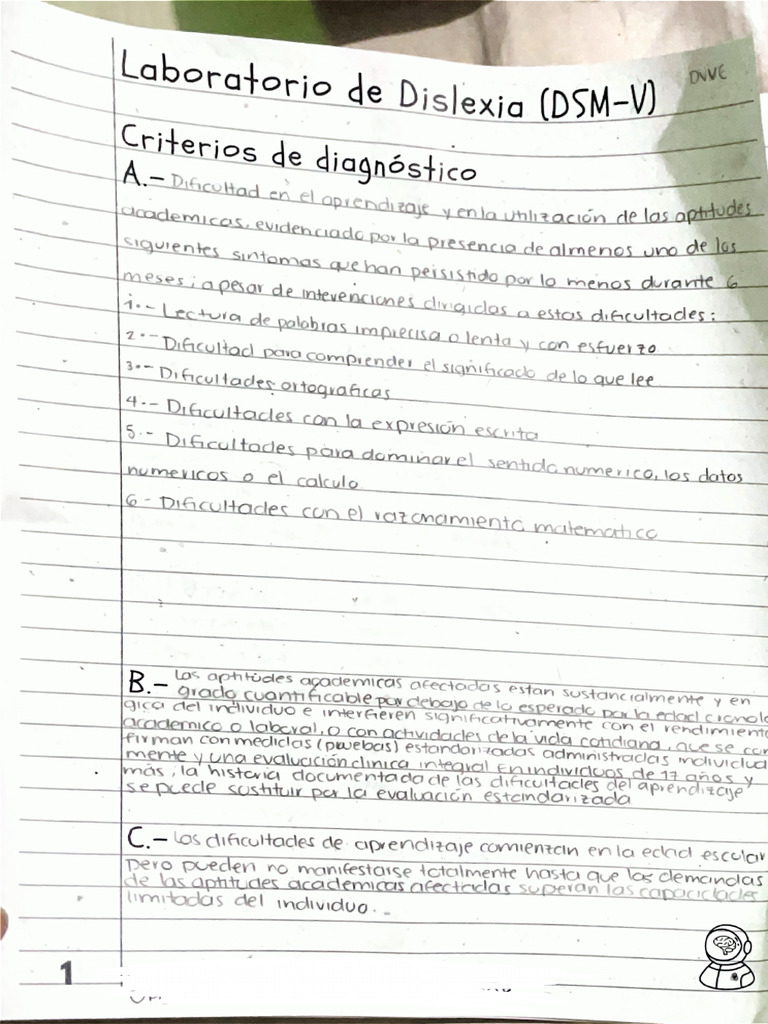 Laboratorio de Dislexia (DSM-V)
DVVE
Criterios de diagnóstico
A.- Dificultad en el aprendizaje y en la utilización de las aptitudes
academicas, evidenciado por la presencia de almenos uno de los
siguientes sintomas que han persistido por lo menos durante 6
meses; apesar de intervenciones dirigidas a estas dificultades:
1.- Lectura de palabras imprecisa o lenta y con esfuerzo
2.- Dificultad para comprender el significado de lo que lee
3.- Dificultades ortograficas
4.- Dificultades con la expresión escrita
5.- Dificultades para dominar el sentido numerico, los datos
numericos o el calculo
6- Dificultades con el razonamiento matematico
B.- Las aptitudes academicas afectadas estan sustancialmente y en
grado cuantificable por debajo de lo esperado por la edad cronolo
gica del individuo e interfieren significativamente con el rendimiento
academico o laboral, o con actividades de la vida cotidiana, que se con
firman con medidas (pruebas) estandarizadas administradas individual
mente y una evaluación clinica integral En individuos de 17 años y
más, la historia documentada de las dificultades del aprendizaje
se puede sustituir por la evaluación estandarizada
C.- Las dificultades de aprendizaje comienzan en la edad escolar
pero pueden no manifestarse totalmente hasta que las demandas
de las aptitudes academicas afectadas superan las capacidades
limitadas del individuo.
1